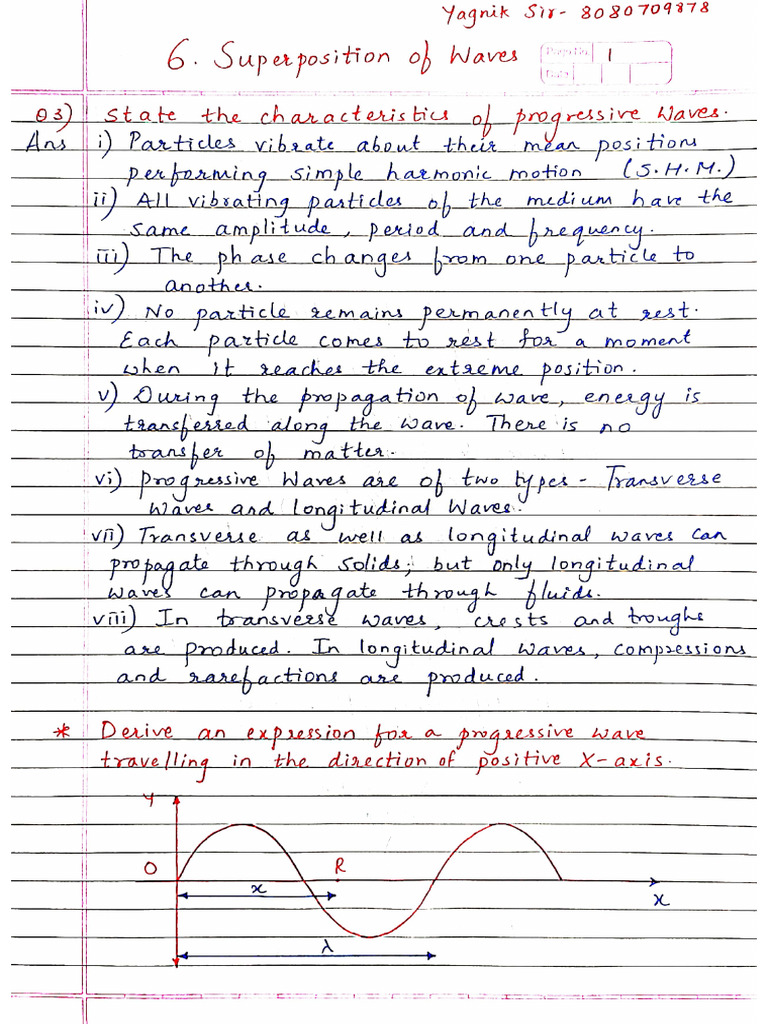 Yagnik Sir- 8080709878
6. Superposition of Waves
Page No. 1
Date
Q3) State the characteristics of progressive Waves.
Ans i) Particles vibrate about their mean positions
performing simple harmonic motion (S.H.M.)
ii) All vibrating particles of the medium have the
same amplitude, period and frequency.
iii) The phase changes from one particle to
another.
iv) No particle remains permanently at rest.
Each particle comes to rest for a moment
when it reaches the extreme position.
v) During the propagation of wave, energy is
transferred along the wave. There is no
transfer of matter.
vi) Progressive Waves are of two types - Transverse
Waves and Longitudinal Waves.
vii) Transverse as well as longitudinal waves can
propagate through solids; but only longitudinal
waves can propagate through fluids.
viii) In transverse waves, crests and troughs
are produced. In longitudinal waves, compressions
and rarefactions are produced.
* Derive an expression for a progressive wave
travelling in the direction of positive X-axis.
Y
O R
x
x
λ